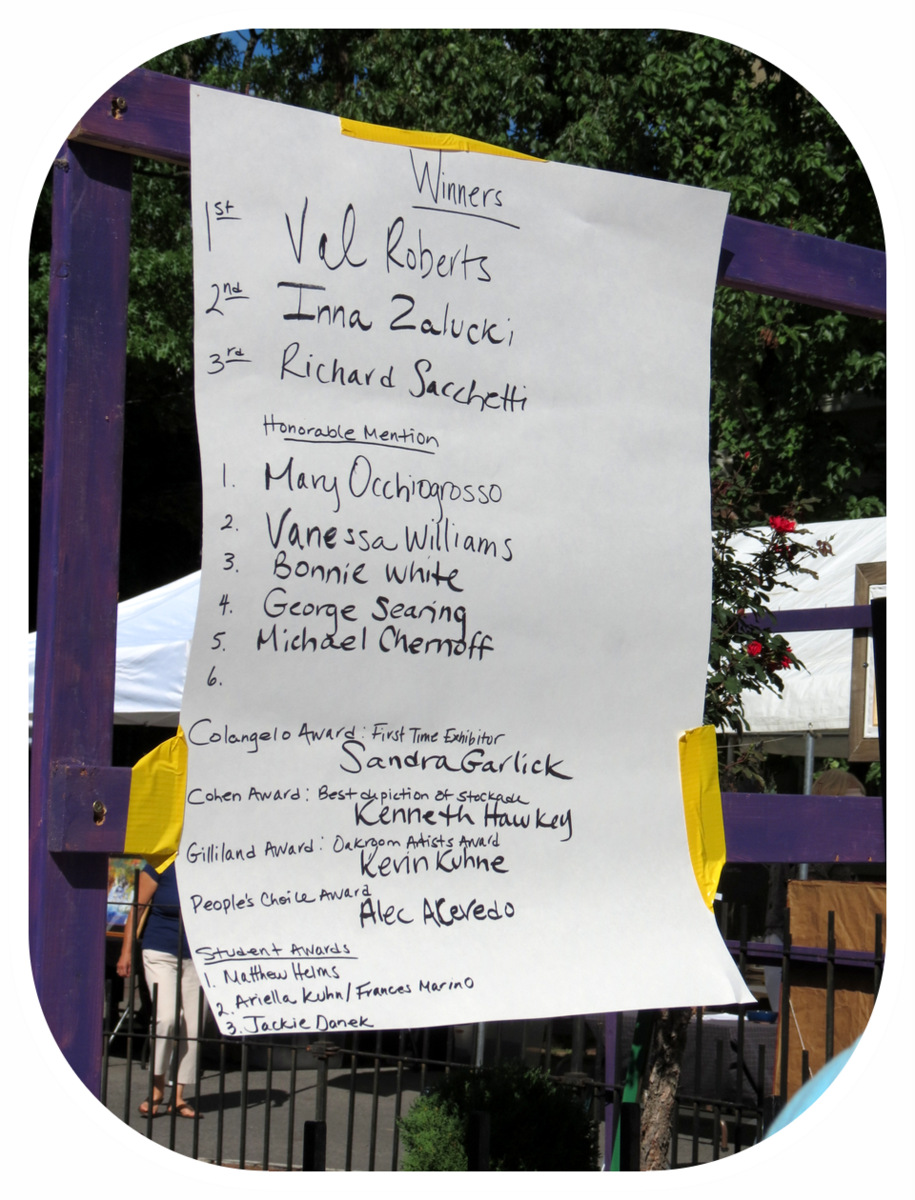 Winners
1st Val Roberts
2nd Inna Zalucki
3rd Richard Sacchetti
Honorable Mention
1. Mary Occhiogrosso
2. Vanessa Williams
3. Bonnie White
4. George Searing
5. Michael Chernoff
6.
Colangelo Award: First Time Exhibitor
Sandra Garlick
Cohen Award: Best depiction of Stockade
Kenneth Hawkey
Gilliland Award: Oakroom Artists Award
Kevin Kuhne
People's Choice Award
Alec Acevedo
Student Awards
1. Matthew Helms
2. Ariella Kuhn/Frances Marino
3. Jackie Danek